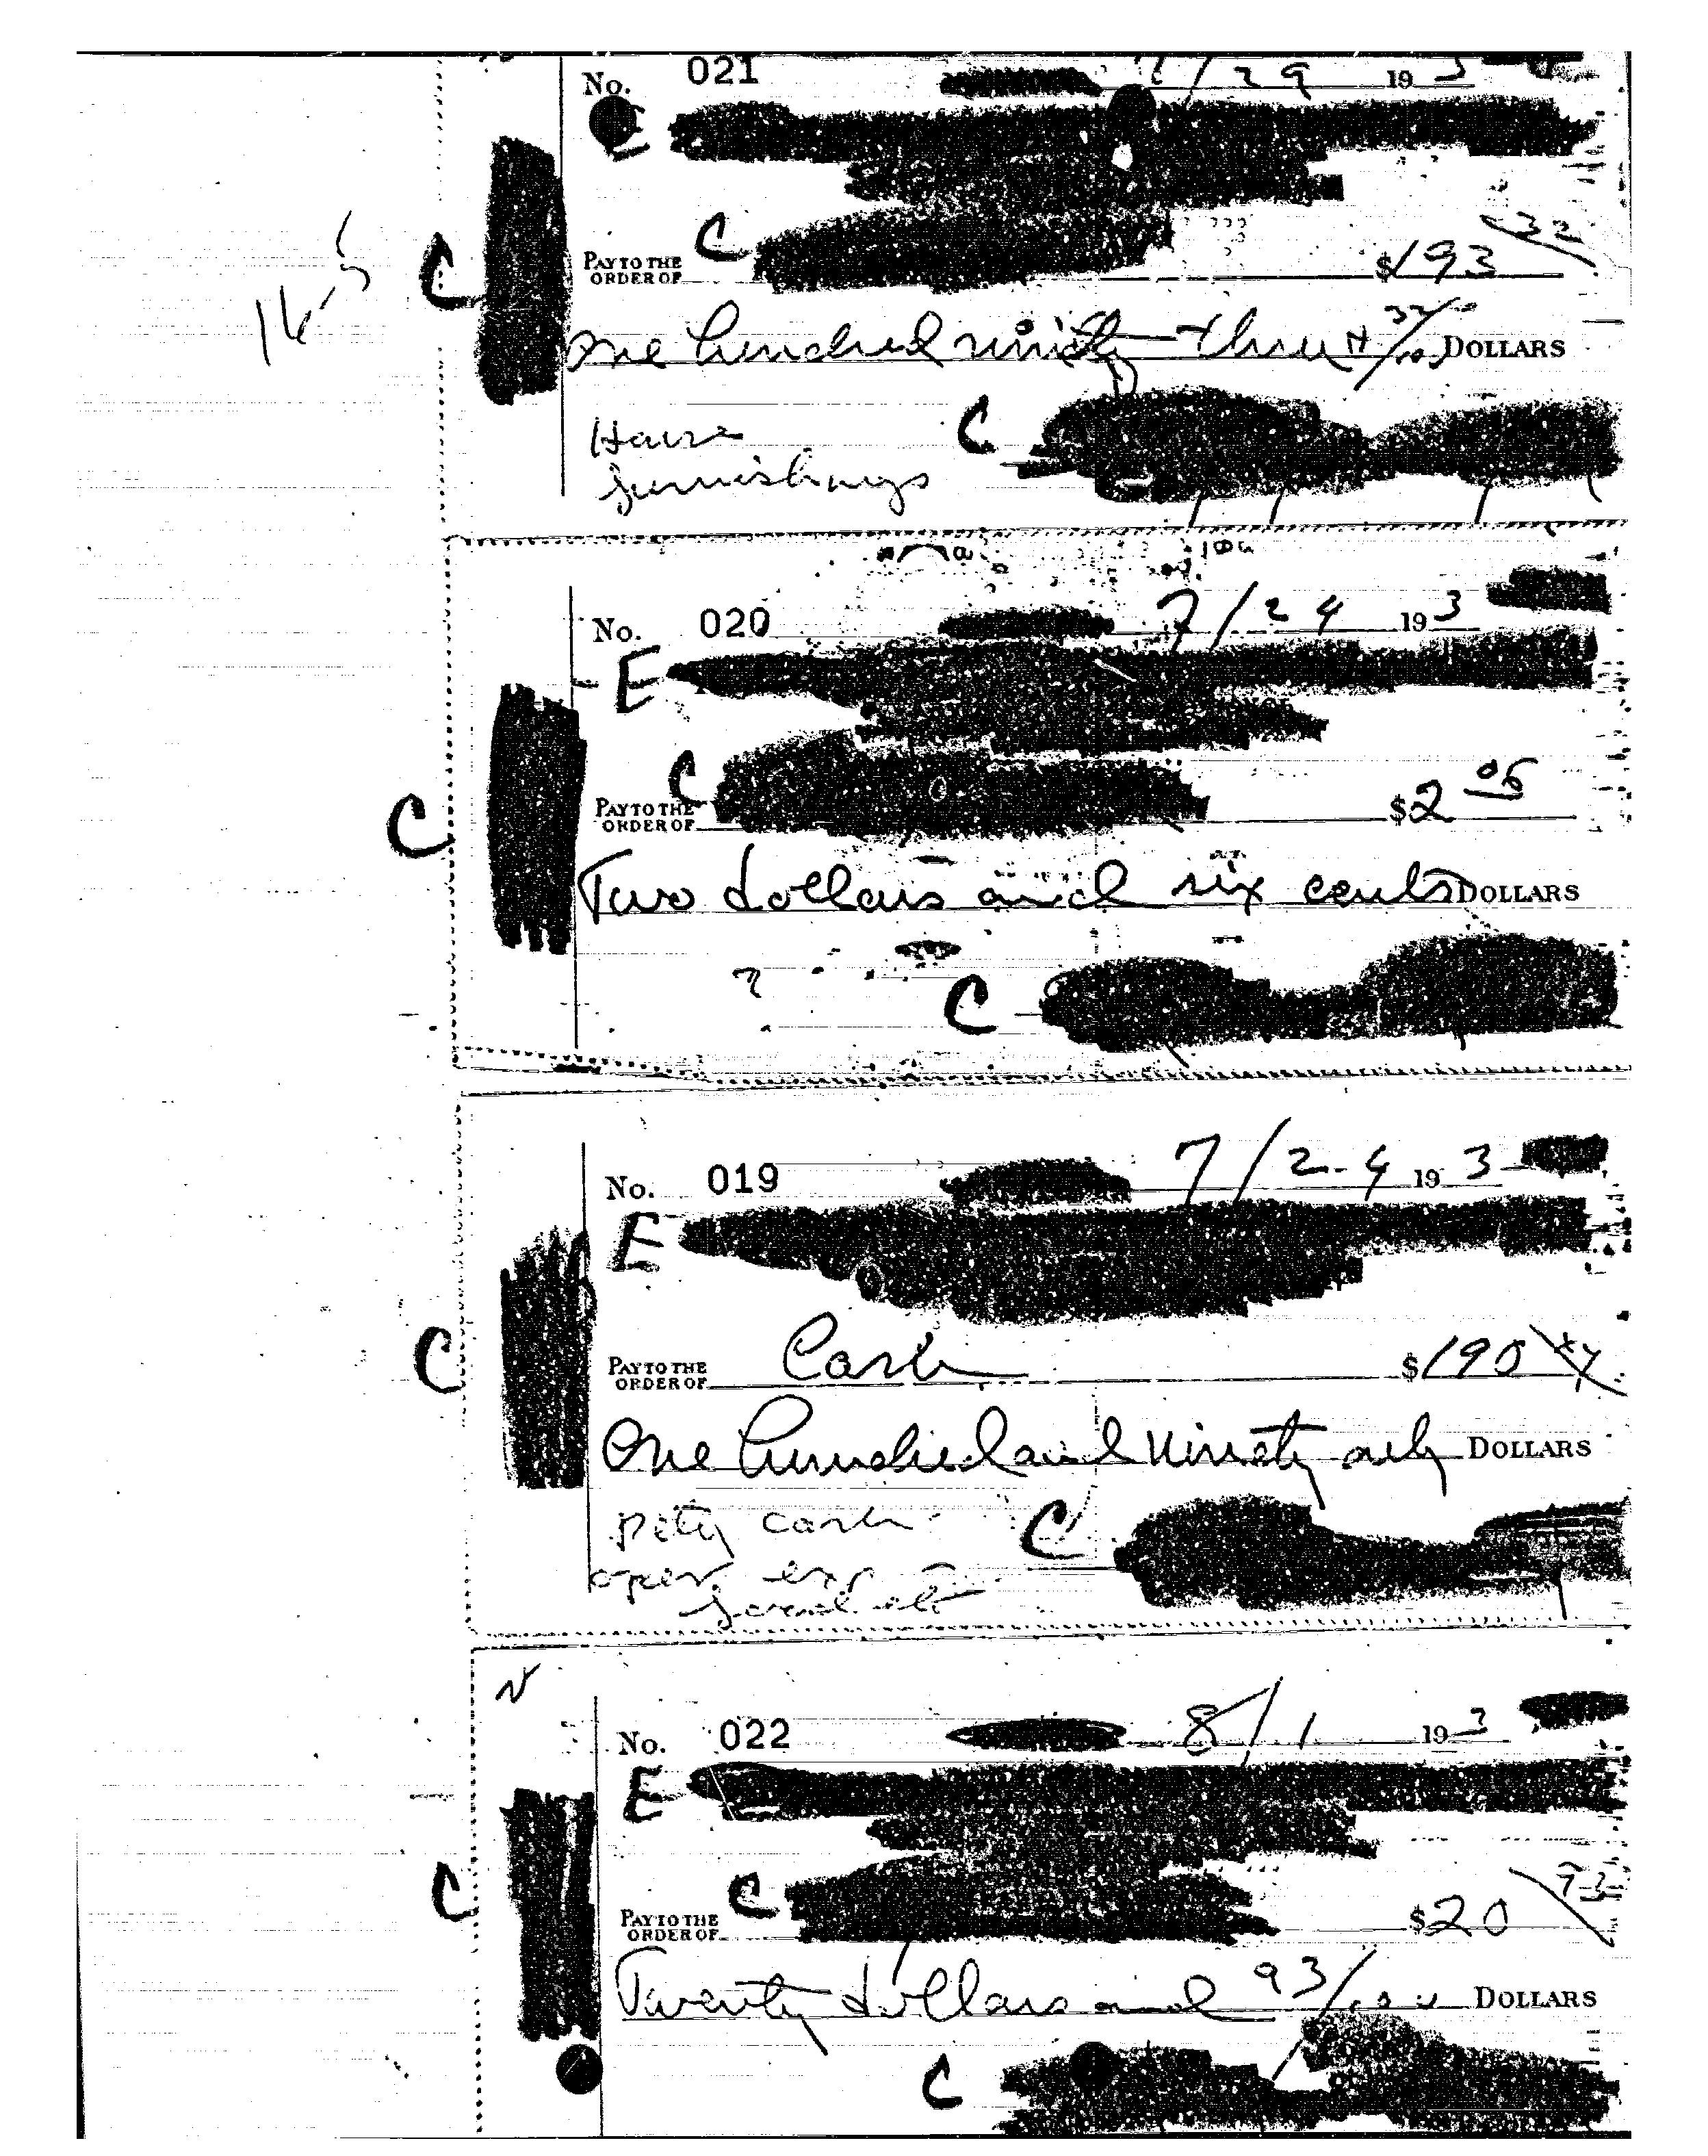 No. 021 7/29 19 3
E
16-5
C
PAY TO THE ORDER OF C $193 32
One hundred ninety three & 32/100 DOLLARS
House C
furnishings
No. 020 7/24 19 3
E
C
PAY TO THE ORDER OF C $2 06
Two dollars and six cents DOLLARS
C
No. 019 7/24 19 3
E
C
PAY TO THE ORDER OF Cash $190 xx
One hundred and ninety only DOLLARS
petty cash C
oper. exp
No. 022 8/1 19 3
E
C
PAY TO THE ORDER OF C $20 93
Twenty dollars and 93/100 DOLLARS
C